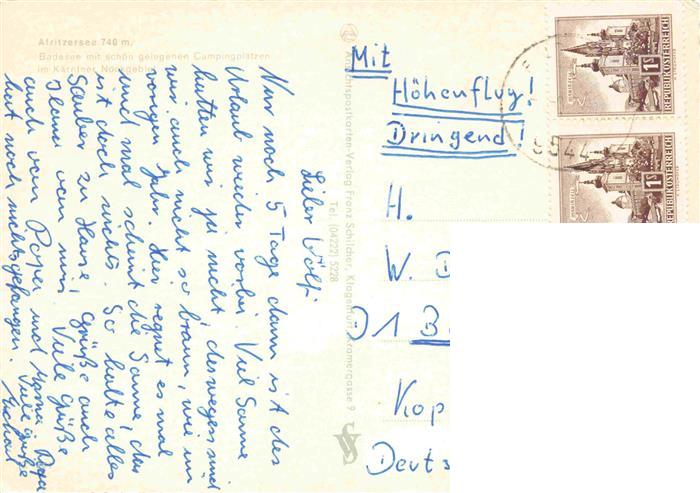 Afritzersee 740 m,
Badesee mit schön gelegenen Campingplätzen
im Kärntner Nockgebiet
Lieber Wölfi
Nur noch 5 Tage dann ist der
Urlaub wieder vorbei. Viel Sonne
hatten wir ja nicht, deswegen sind
wir auch nicht so braun, wie im
vorigen Jahr. Hier regnet es mal
und mal scheint die Sonne, das
ist doch nichts. So halte alles
Sauber zu Hause! Grüße auch
von mir Viele Grüße
auch vom Papa und Mama. Papa
hat noch nichts gefangen. Viele Grüße
Ansichtspostkarten-Verlag Franz Schilcher, Klagenfurt, Kramergasse 9
Tel. (04222) 5228
Mit
Höhenflug!
Dringend!
H.
W.
D1 B
Kop
Deuts
9544
1S
REPUBLIK ÖSTERREICH
MARIAZELL
1S
REPUBLIK ÖSTERREICH